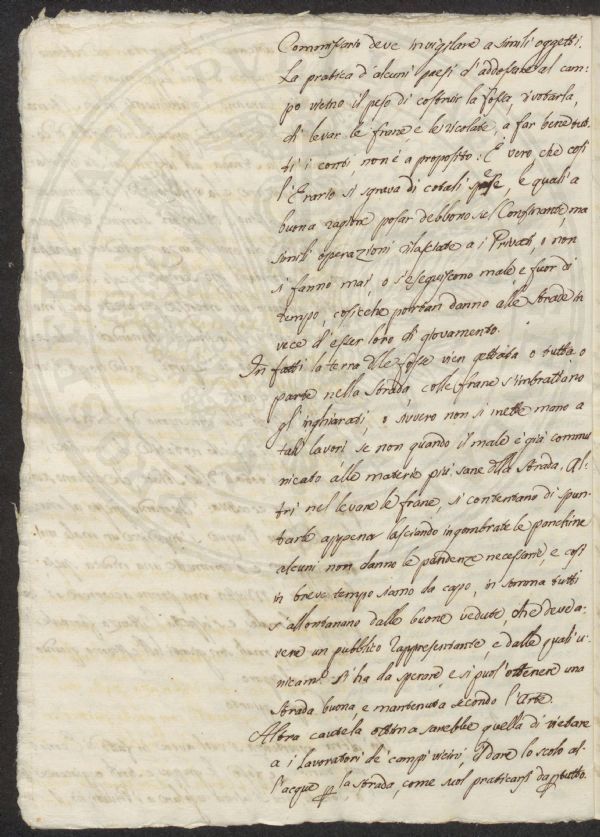 Commissario deve invigilare a simili oggetti.
La pratica d'alcuni paesi d'addossare al cam-
po vicino il peso di costruir la fossa, vuotarla,
di levar le frane, e le scolate, a far bene tut-
ti i conti, non è a proposito: È vero, che così
l'Erario si sgrava di cotali spese, e quali a
buona ragione posar debbono sul Confinante, ma
simili operazioni rilasciate a i Privati, o non
si fanno mai, o s'eseguiscono male, e fuor di
tempo, cosicche portan danno alle strade in
vece d'esser loro di giovamento.
In fatti la terra delle fosse vien gettata o tutta o
parte nella strada, colle frane s'imbrattano
gl'inghiarati, o sivvero non si mette mano a
tali lavori se non quando il male è già commu-
nicato alle materie più sane della strada. Al-
tri nel levare le frane, si contentano di spun-
tarle appena lasciando ingombrate le panchine
alcuni non danno le pendenze necessarie, e così
in breve tempo siamo da capo, in somma tutti
s'allontanano dalle buone vedute, che deve a-
vere un pubblico rappresentante, e dalle quali u-
nicam. si ha da sperare, e si può ottenere una
strada buona e mantenuta secondo l'Arte.
Altra cautela ottima sarebbe quella di vietare
a i lavoratori de' campi vicini, il dare lo scolo al-
l'acque per la strada, come suol praticarsi da per tutto.